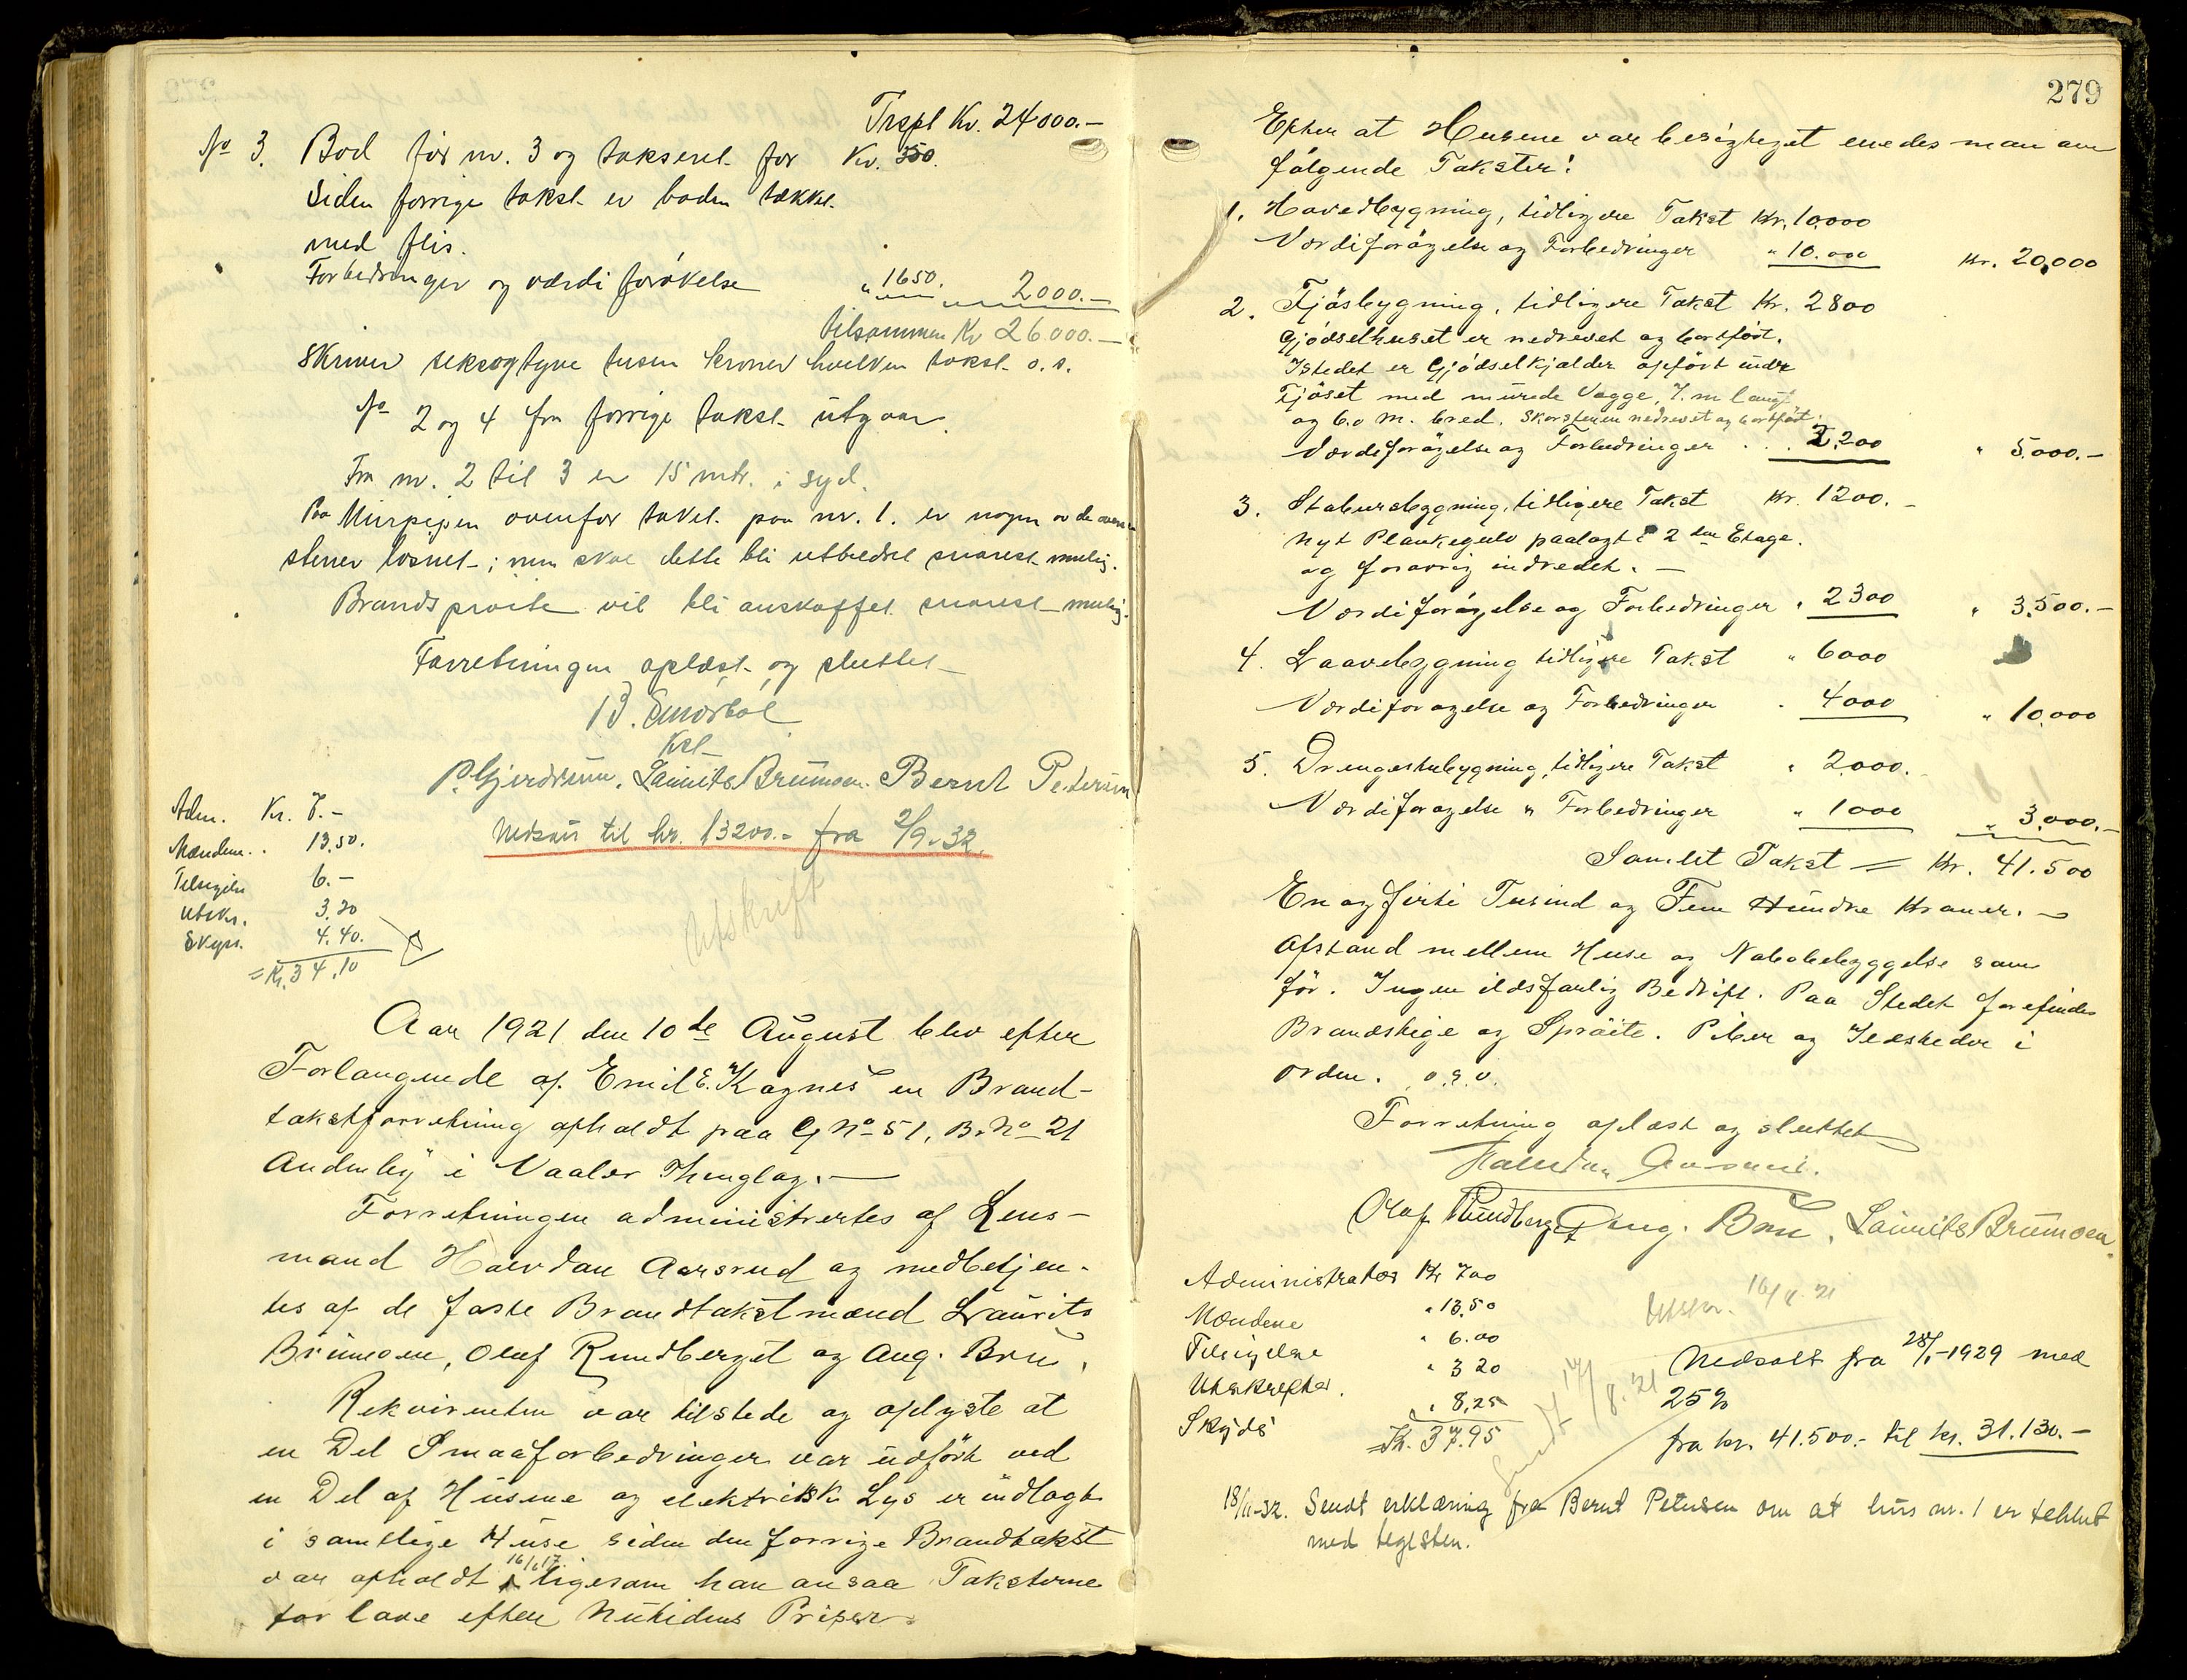 Trspt Kr. 24000.-
No 3. Bod før nr. 3 og taksert for Kr. 350.
Siden forrige takst er boden tækket
med flis.
Forbedringer og værdiforøkelse " 1650. 2000.-
tilsammen Kr 26000.-
Skriver seksogtyve tusen kroner hvilken takst o.s.
No 2 og 4 fra forrige takst utgaar.
Fra nr. 2 til 3 er 15 mtr. i syd.
Paa Murpipen ovenfor taket paa nr. 1. er nogen av de øverste
stener løsnet; men skal dette bli utbedret snarest mulig.
Brandsprøite vil bli anskaffet snarest mulig.
Forretningen oplæst og sluttet
B. Smørbøl
Kst
P. Gjerdrum. Laurits Brumoen. Bernt Petersen
Adm. Kr. 7.-
Mændene.. 13.50.
Tilsigelse 6.-
Utskr. 3.20
Skyss. 4.40.
= Kr. 34.10
Nedsat til kr. 13200.- fra 2/9-32.
Utskrift
Aar 1921 den 10de August blev efter
Forlangende af Emil E. Kognes en Brand-
takstforretning afholdt paa G No 51, B. No 21
Andenby i Vaaler Thinglag.
Forretningen administrertes af Lens-
mand Halvdan Aarsrud og medbetjen-
tes af de faste Brandtakstmænd Laurits
Brumoen, Olaf Rundberget og Aug. Bru.
Rekvirenten var tilstede og oplyste at
en Del Smaaforbedringer var udført ved
en Del af Husene og elektrisk Lys er indlagt
i samtlige Huse siden den forrige Brandtakst
var afholdt 16/1.17. ligesom han ansaa Taksterne
for lave efter Nutidens Priser.
279
Efter at Husene var besigtiget enedes man om
følgende Takster:
1. Hovedbygning, tidligere Takst Kr. 10.000
Værdiforøgelse og Forbedringer " 10.000 Kr. 20,000
2. Fjøsbygning, tidligere Takst Kr. 2800
Gjødselhuset er nedrevet og bortført.
Istedet er Gjødselkjælder opført under
Fjøset med murede Vægge, 7. m langt
og 6.0 m. bred. Skorstenen nedrevet og bortført.
Værdiforøgelse og Forbedringer .. 2.200 " 5.000.-
3. Stabursbygning, tidligere Takst Kr. 1200.-
Nyt Plankegulv paalagt i 2den Etage.
og forøvrig indredet.-
Værdiforøgelse og Forbedringer " 2300 " 3.500.-
4. Laavebygning tidligere Takst " 6000
Værdiforøgelse og Forbedringer . 4000 " 10.000
5. Drengestubygning, tidligere Takst " 2000.-
Værdiforøgelse " Forbedringer " 1000 " 3.000.-
Samlet Takst = Kr. 41.500
En og firti Tusind og Fem Hundre Kroner.
Afstand mellem Huse og Nabobebyggelse som
før. Ingen ildsfarlig Bedrift. Paa Stedet forefindes
Brandstige og Sprøite. Piber og Ildsteder i
orden. o.s.v.
Forretning oplæst og sluttet
Halvdan Aarsrud.
Olaf Rundberget Aug. Bru. Laurits Brumoen.
Administrator Kr 7.00
Mændene " 13.50
Tilsigelse " 6.00
Utskrifter. " 3 20
Skyds " 8,25
= Kr. 37.95
Utskr. 16/8.21
Sendt 17/8.21
Nedsatt fra 28/1-1929 med
25%
fra kr. 41.500.- til kr. 31.130.-
18/11-32. Sendt erklæring fra Bernt Petersen om at hus nr. 1 er tekket
med teglsten.